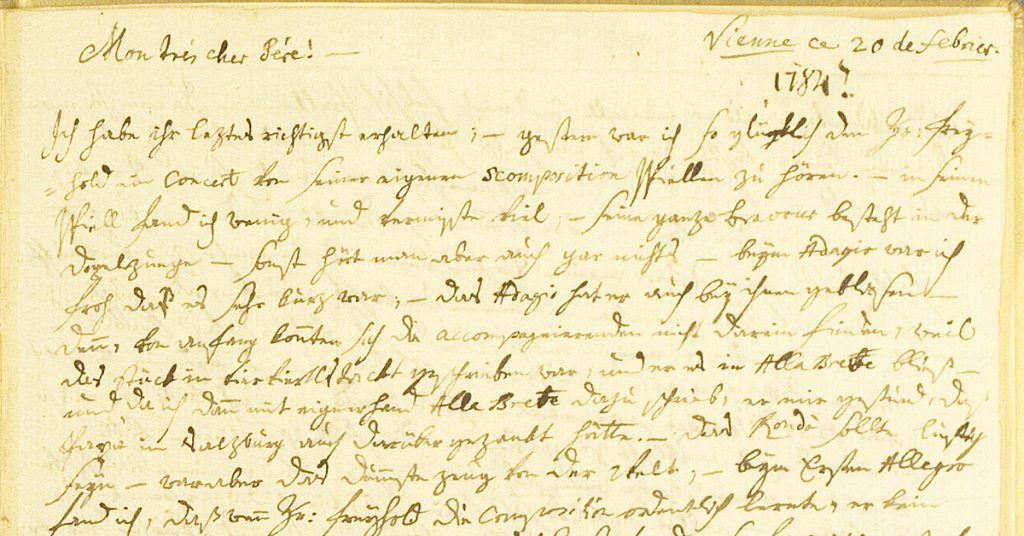 Mon trés cher Pére! —
Vienne ce 20 de febrier.
1784!
Ich habe ihr leztes richtigst erhalten; — gestern war ich so glücklich den Hr: frey=
=hold ein Concert von seiner eigenen scomposition spiellen zu hören. — in seinem
spiell fand ich wenig, und vermisste viel; — seine ganze bravour besteht in der
Dopelzunge — sonst hört man aber auch gar nichts — beym Adagio war ich
froh daß es sehr kurz war; — das Adagio hat er auch bey ihnen geblasen —
denn, von anfang konnten sich die accompagnierenden nicht darein finden, weil
das stück in vierviertltackt geschrieben war, und er es in Alla Breve bließ —
und, da ich dann mit eigner hand Alla Breve dazu schrieb, er mir gestund, daß
Papa in Salzburg auch darüber gezankt hätte. — das Rondò sollte lustig
seyn — war aber das dümmste zeug von der Welt; — beym Ersten Allegro
fand ich, daß wenn Hr: freyhold die Composition ordentlich lernte, er kein